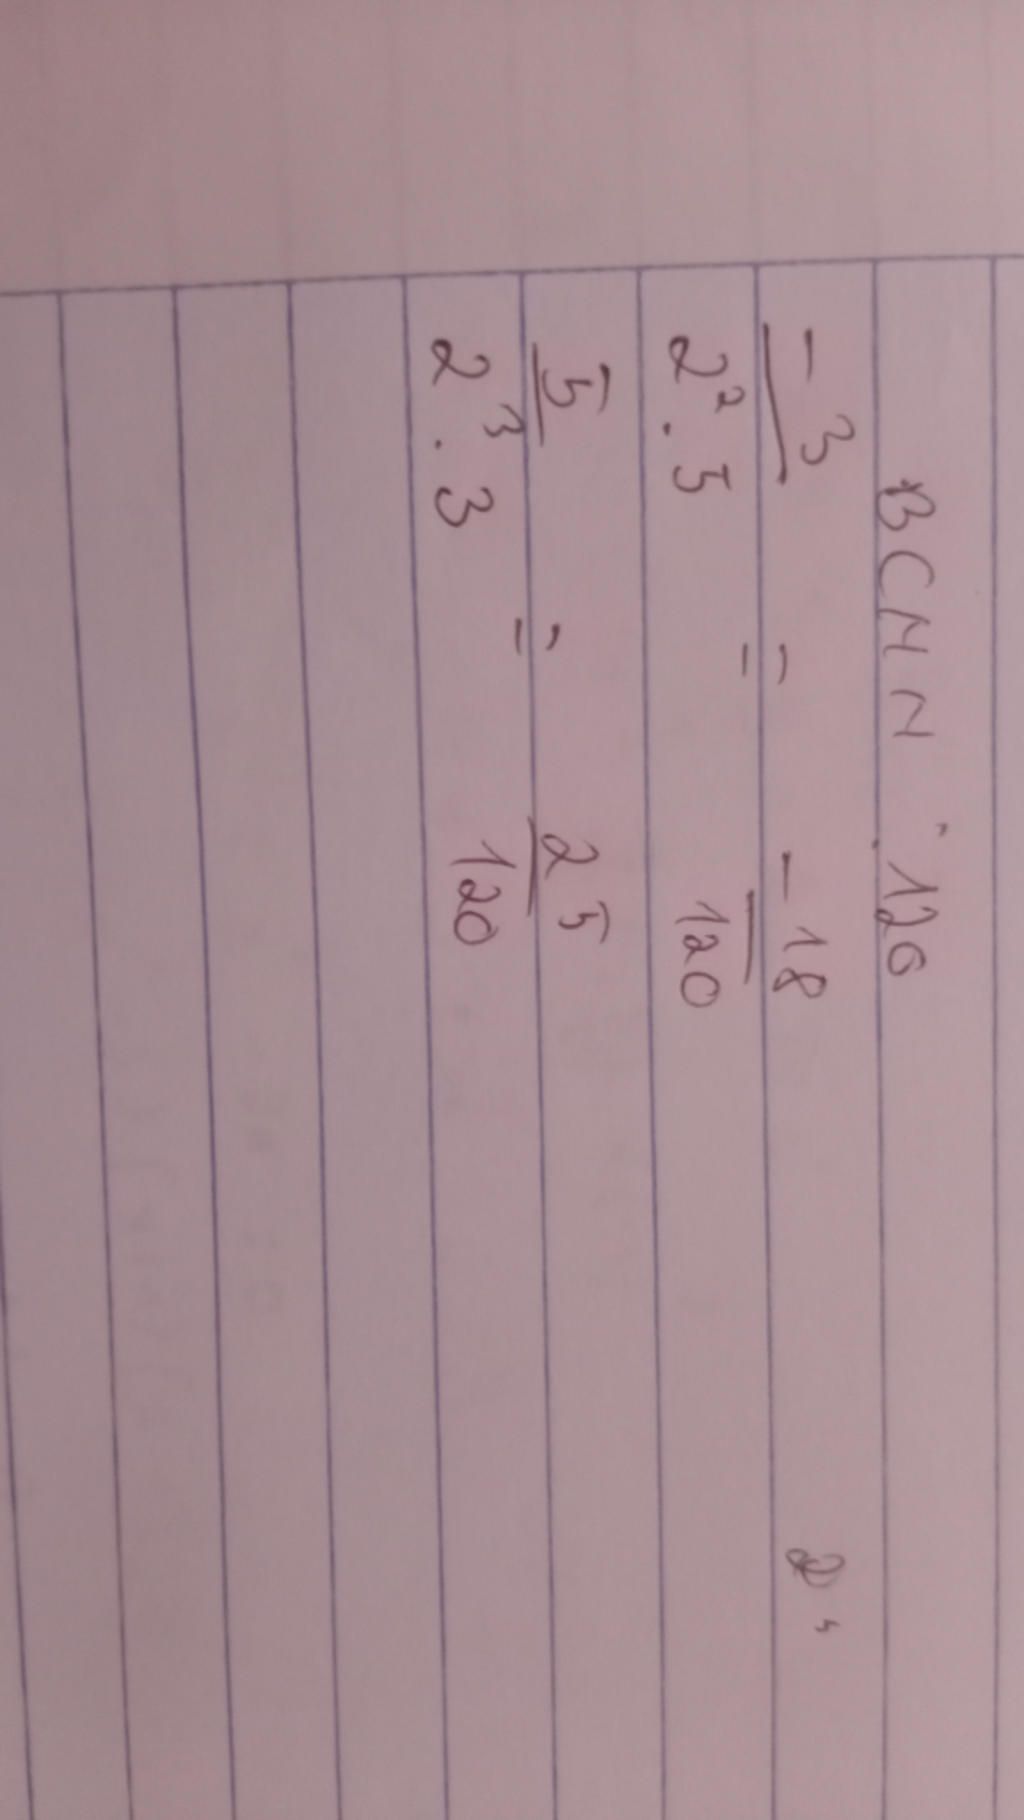 BCNN : 120
-3 / 2² . 5 = -18 / 120
5 / 2³ . 3 = 25 / 120